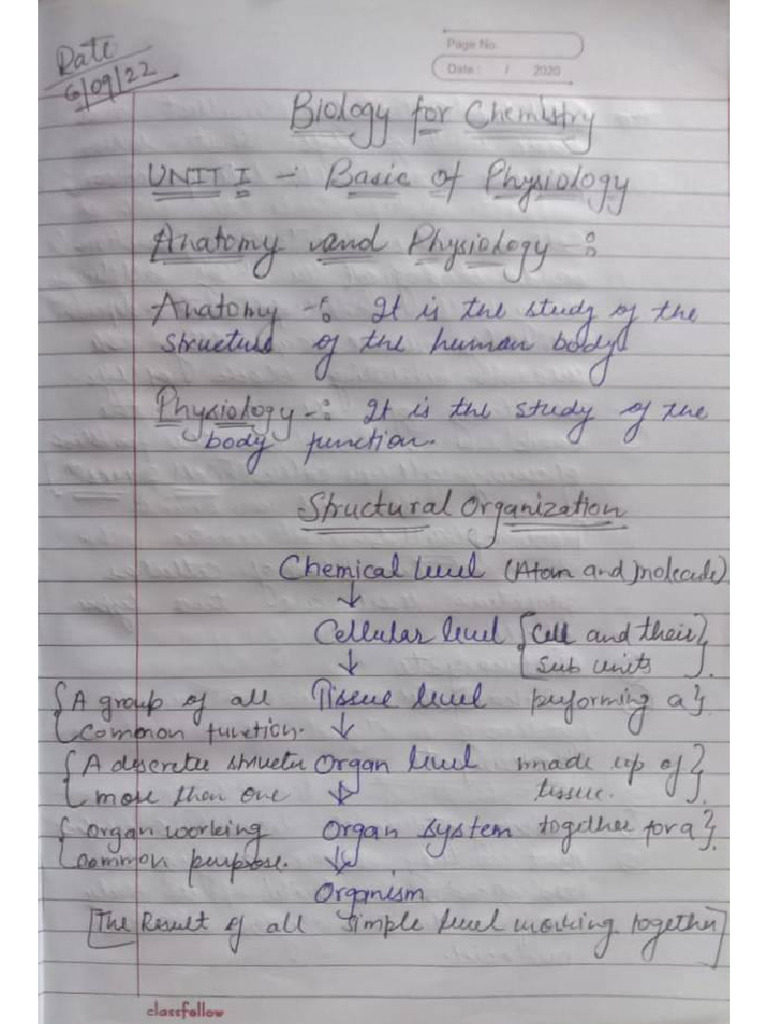 Date
6/09/22
Page No
Date : / 2020
Biology for Chemistry
UNIT I - Basic of Physiology
Anatomy and Physiology -:
Anatomy -: It is the study of the
structure of the human body
Physiology -: It is the study of the
body function.
Structural Organization
Chemical level (Atom and molecule)
↓
Cellular level {Cell and their}
↓ {sub units}.
{A group of all Tissue level performing a}
{common function. ↓
{A discrete structu Organ level made up of}
{more than one ↓ tissue.}.
{organ working Organ system together for a}.
{common purpose. ↓
Organism
[The Result of all simple level working together]
classfellow